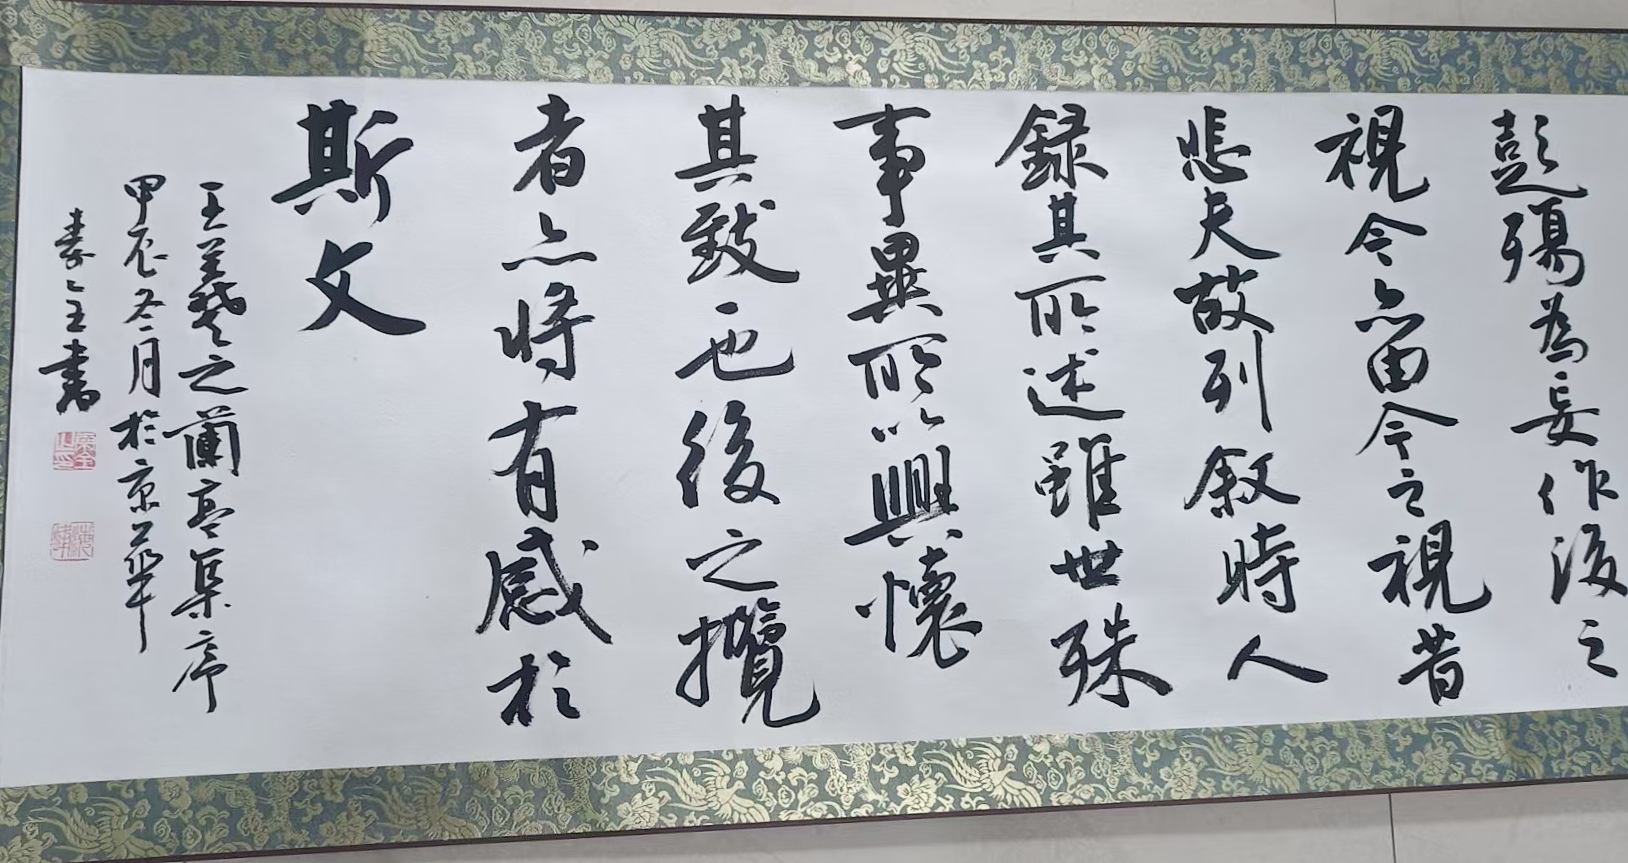 彭殤為妄作後之
視今亦由今之視昔
悲夫故列叙時人
録其所述雖世殊
事異所以興懷
其致也後之攬
者亦將有感於
斯文
王羲之蘭亭集序
甲辰冬月於京華
書